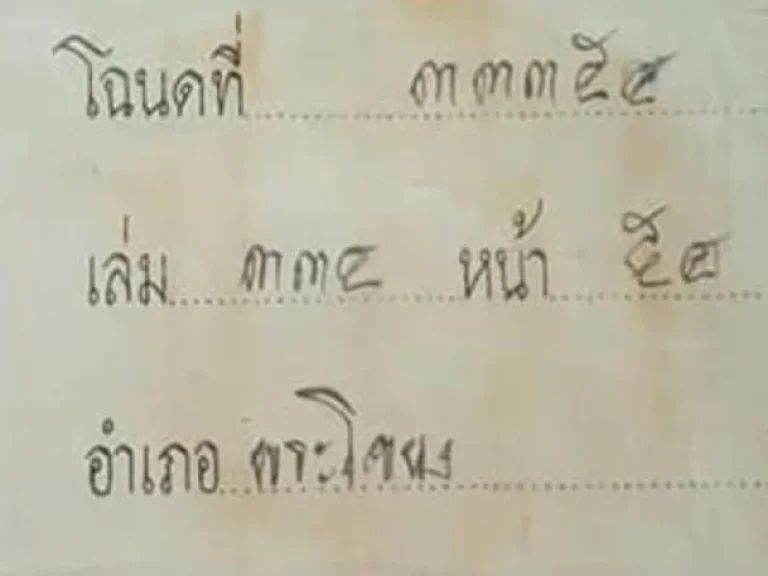 โฉนดที่ ๓๓๓๕๔
เล่ม ๓๓๔ หน้า ๕๔
อำเภอ พระโขนง